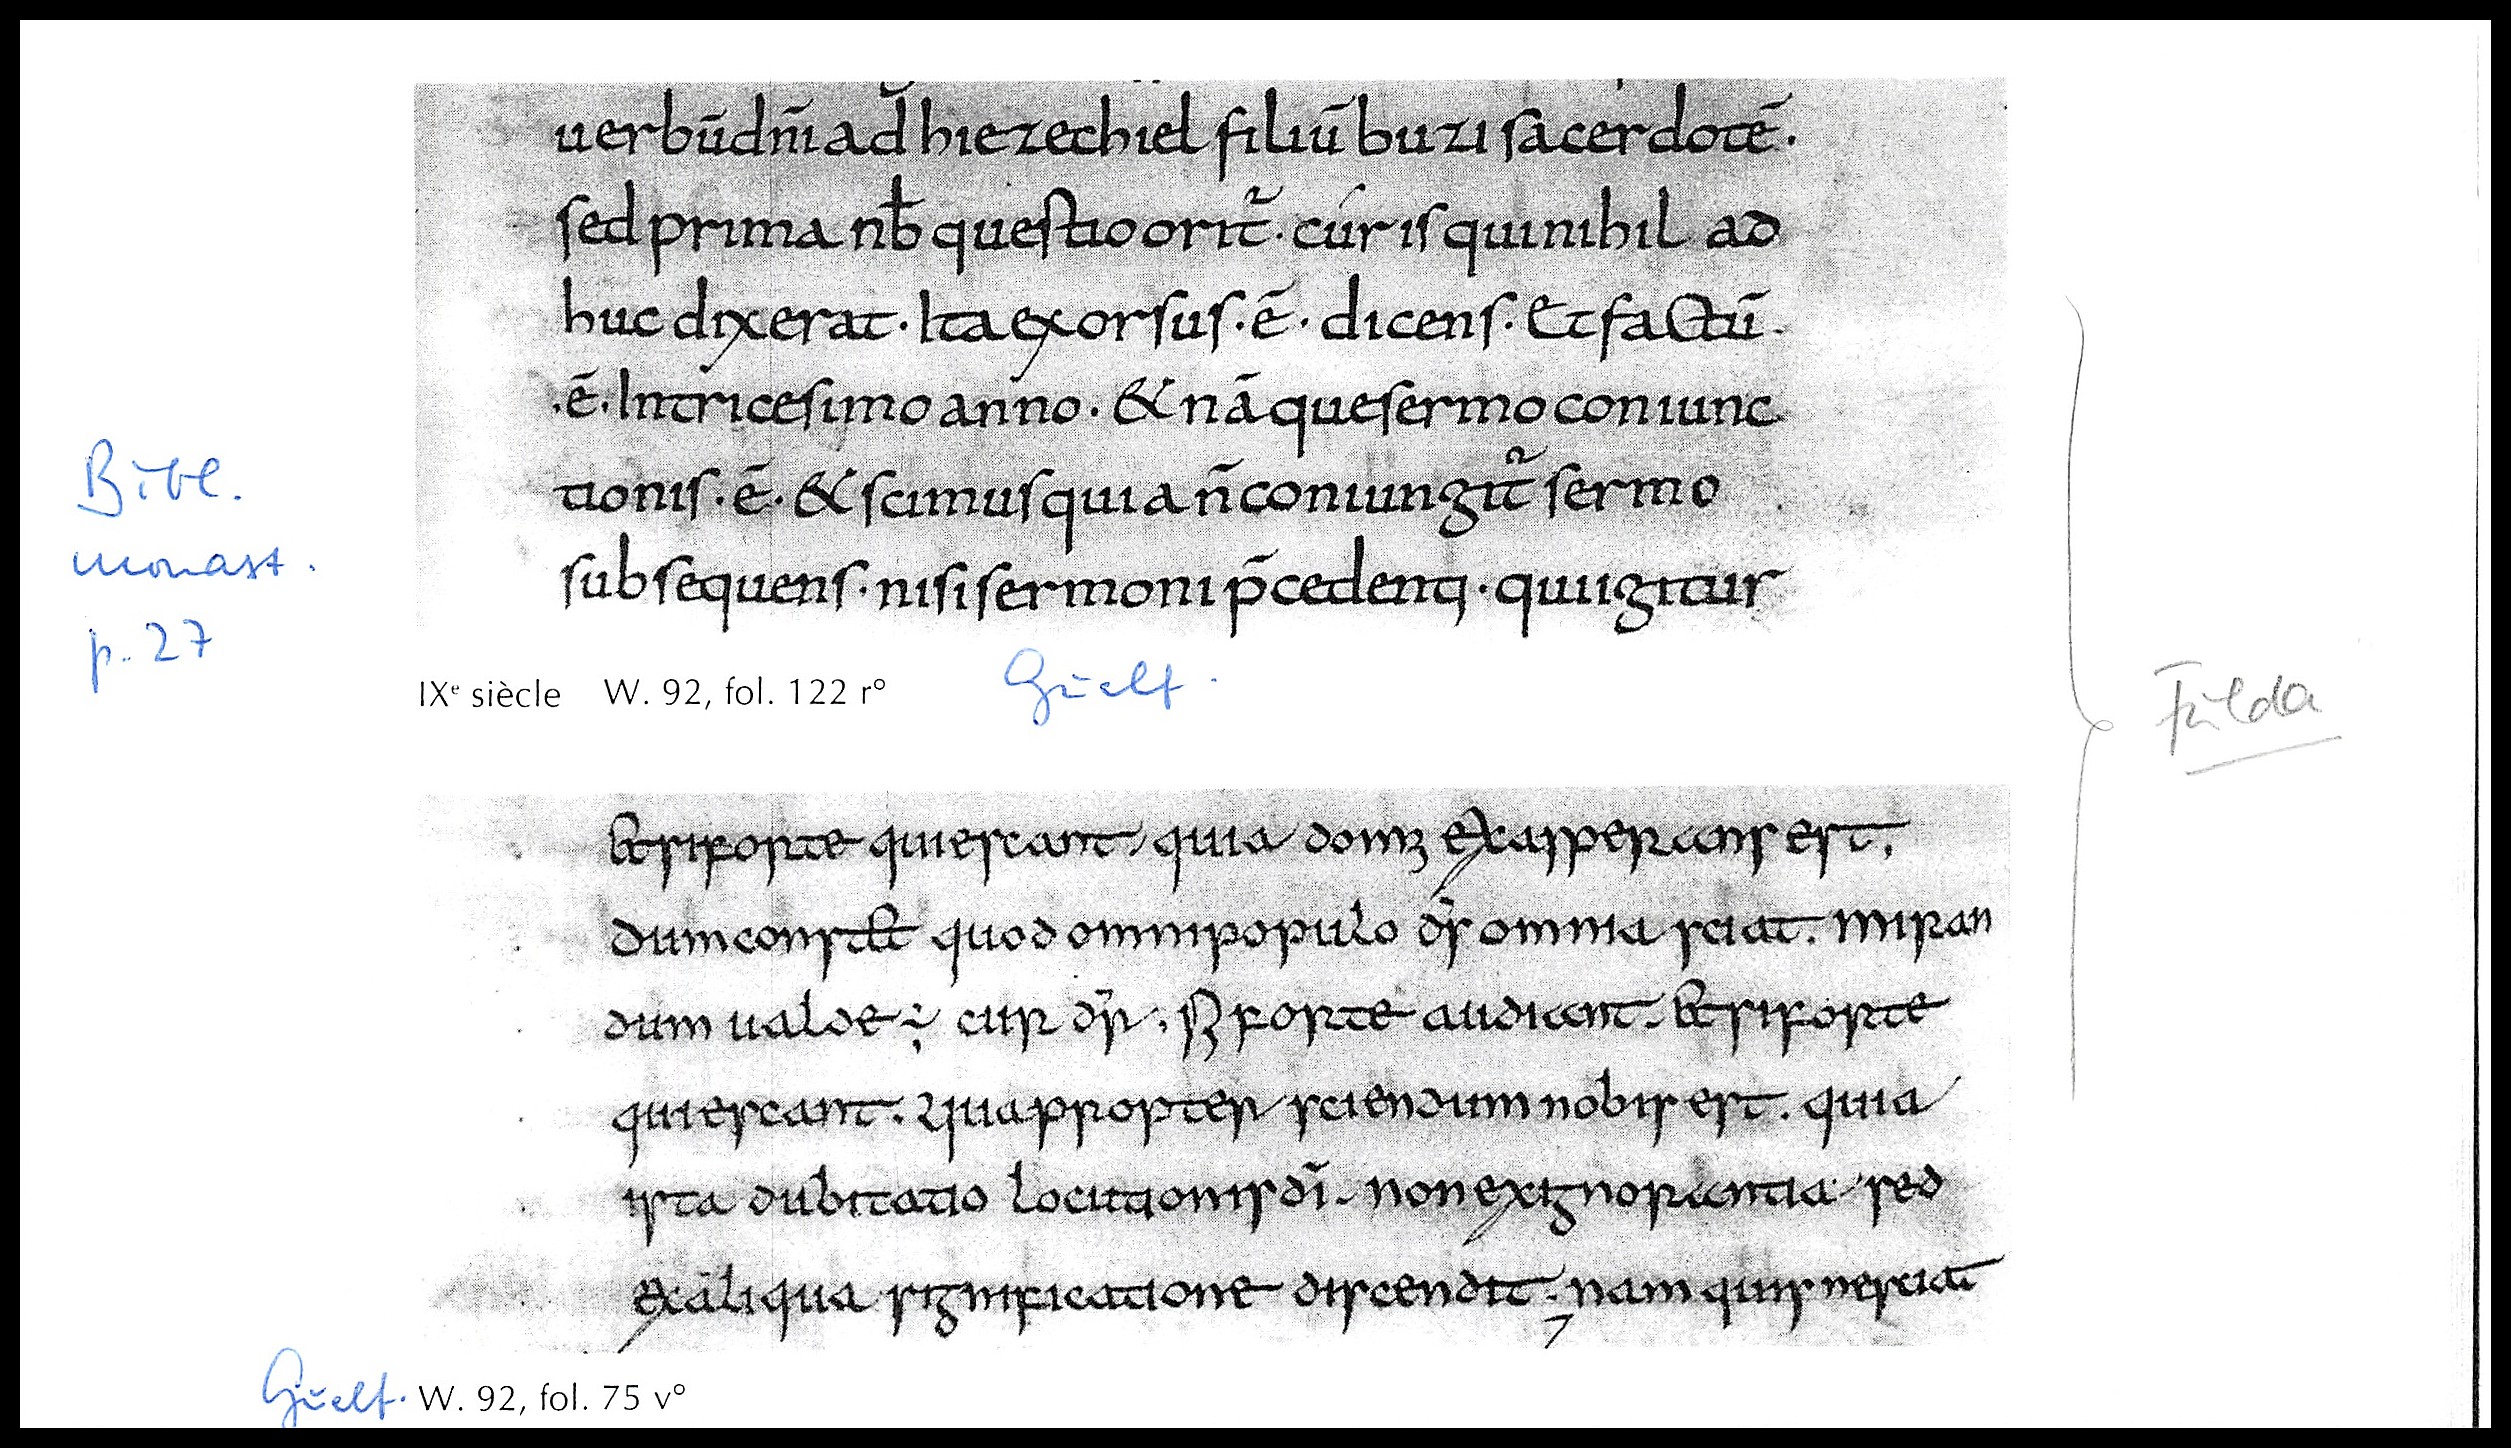 uerbū dn̄i ad hiezechiel filiū buzi sacerdotē ·
sed prima nƀ questio orit᷑ · cúr is qui nihil ad
huc dixerat · Ita exorsus · ē · dicens · Et factū
· ē · In tricesimo anno · & nāque sermo coniunc
tionis · ē · & scimus quia n̄ coniungit᷑ sermo
subsequens · nisi sermoni p̄cedenti · qui igitur
Bibl.
monast.
p. 27
IXᵉ siècle W. 92, fol. 122 r°
Guelf.
Fulda
et si forte quiescant, quia domꝫ exasperans est,
dum constet quod omni populo d̄s omnia sciat. miran
dum ualde; cur d̄r, forte audiant. et si forte
quiescant. Quapropter sciendum nobis est. quia
ista dubitatio locutionis dī. non ex ignorantia sed
ex aliqua significatione discendit. nam quis nesciat
Guelf. W. 92, fol. 75 v°